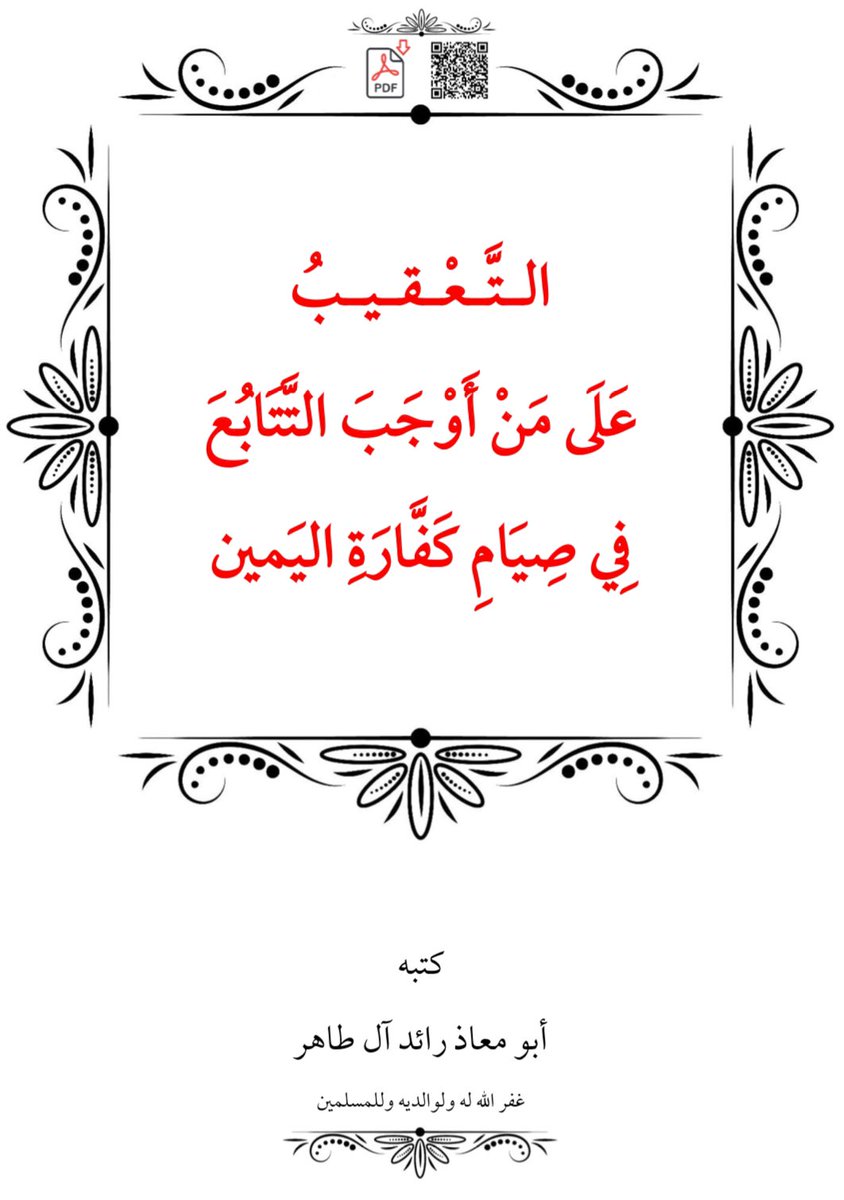 PDF
التَّعْقِيبُ
عَلَى مَنْ أَوْجَبَ التَّتَابُعَ
فِي صِيَامِ كَفَّارَةِ اليَمين
كتبه
أبو معاذ رائد آل طاهر
غفر الله له ولوالديه وللمسلمين